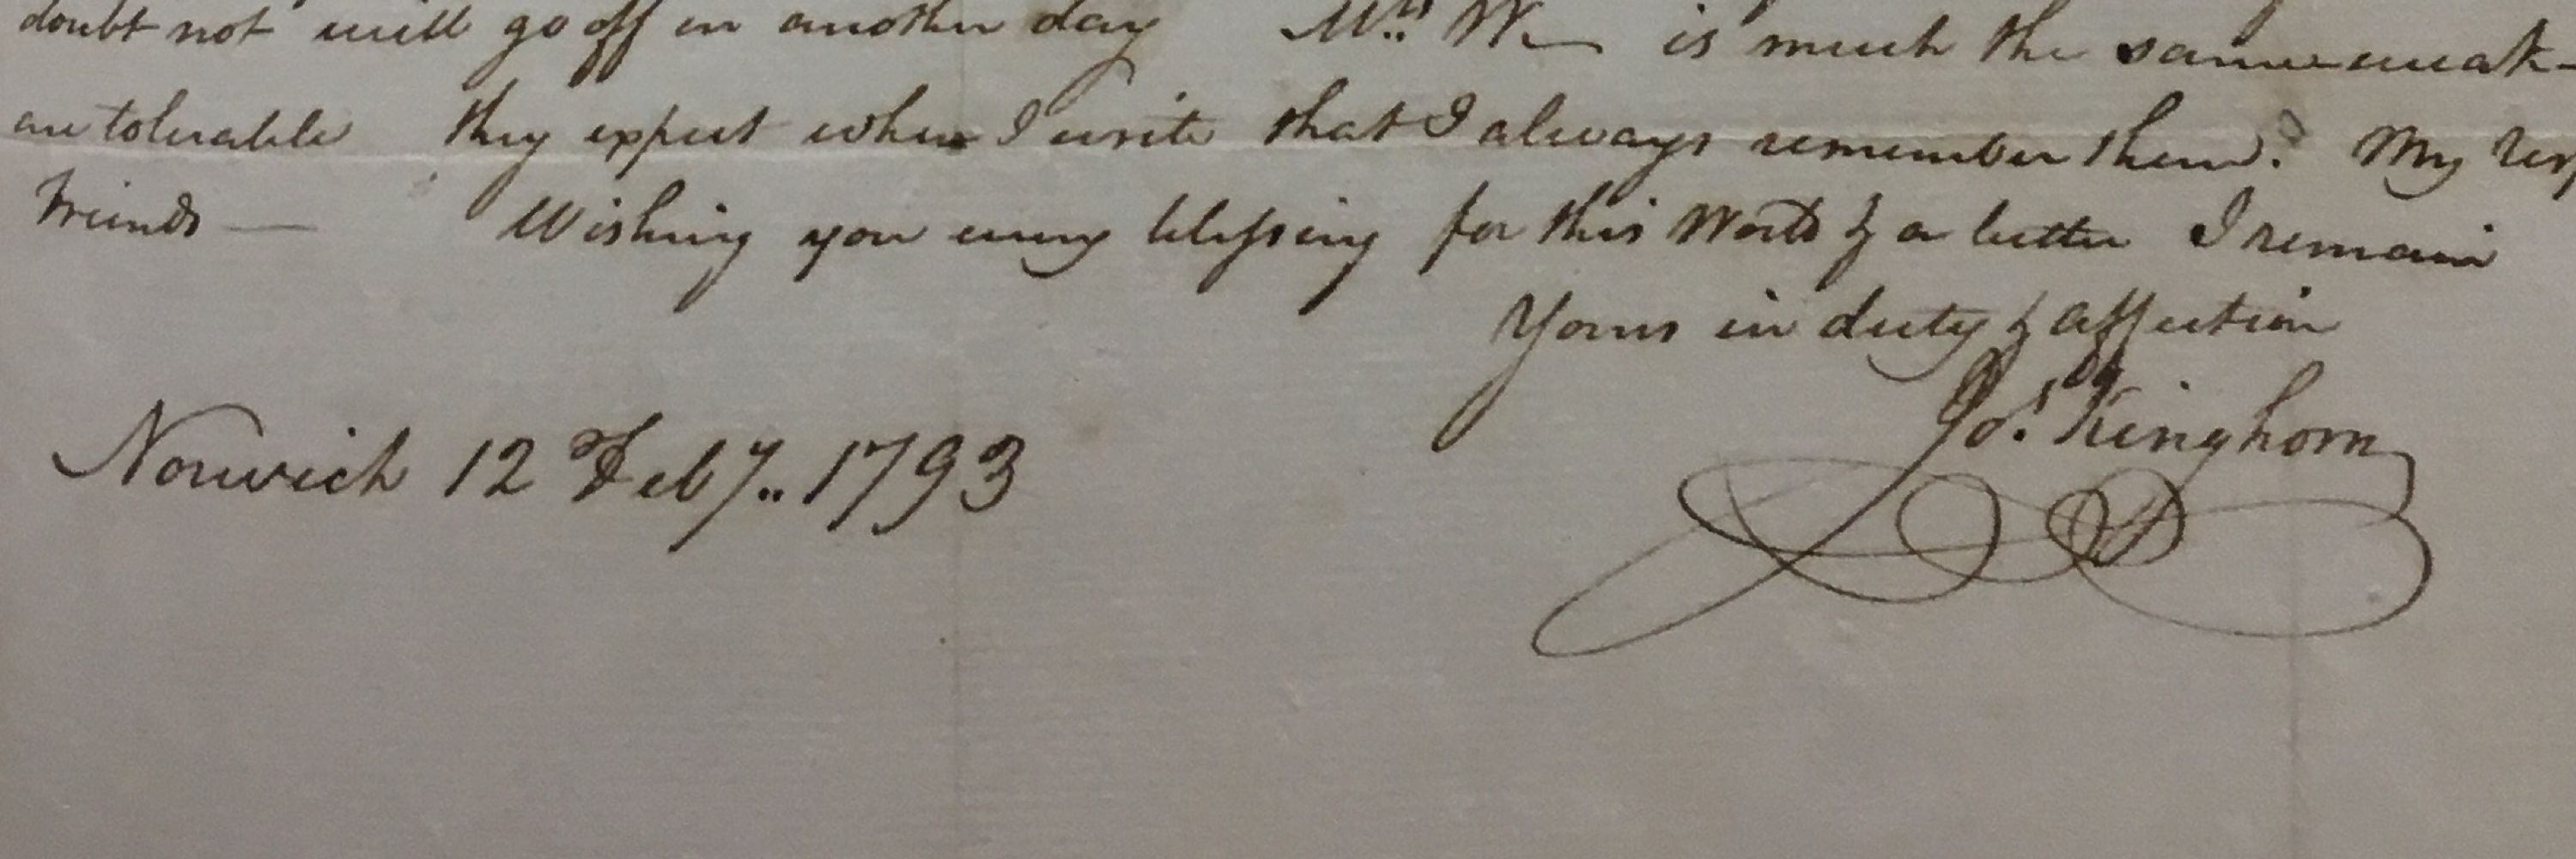 doubt not will go off in another day Mrs. W— is much the same weak-
are tolerable they expect when I write that I always remember them. My
friends — Wishing you every blessing for this World & a better I remain
Yours in duty & affection
Jos. Kinghorn
Norwich 12 Feby. 1793